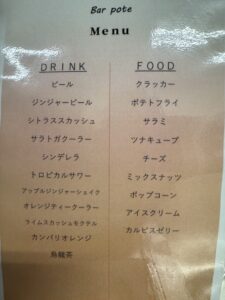 Bar pote
Menu
DRINK
ビール
ジンジャービール
シトラススカッシュ
サラトガクーラー
シンデレラ
トロピカルサワー
アップルジンジャーシェイク
オレンジティークーラー
ライムスカッシュモクテル
カンパリオレンジ
烏龍茶
FOOD
クラッカー
ポテトフライ
サラミ
ツナキューブ
チーズ
ミックスナッツ
ポップコーン
アイスクリーム
カルピスゼリー